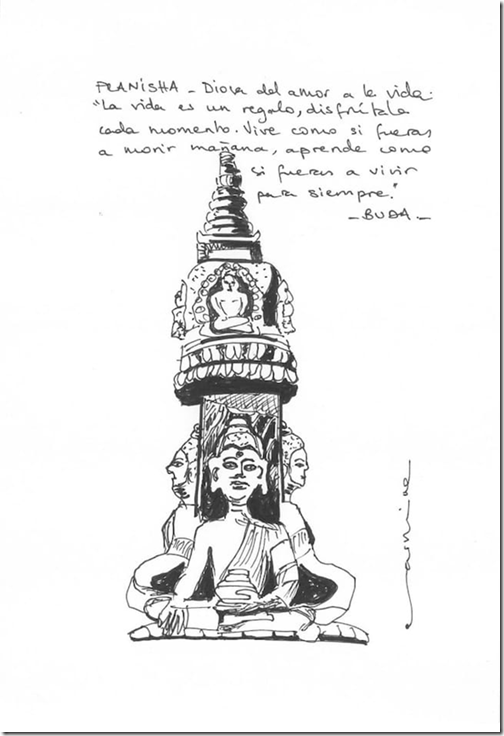 PRANISHA - Diosa del amor a la vida.
"La vida es un regalo, disfrútala
cada momento. Vive como si fueras
a morir mañana, aprende como
si fueras a vivir
para siempre."
- BUDA -